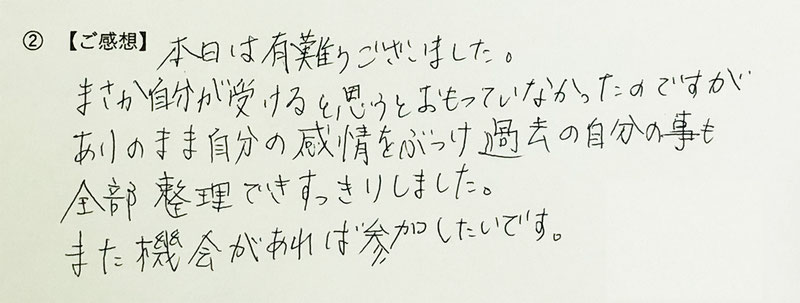 ② 【ご感想】 本日は有難うございました。
まさか自分が受けると思うとおもっていなかったのですが
ありのまま自分の感情をぶつけ過去の自分の事も
全部整理できすっきりしました。
また機会があれば参加したいです。